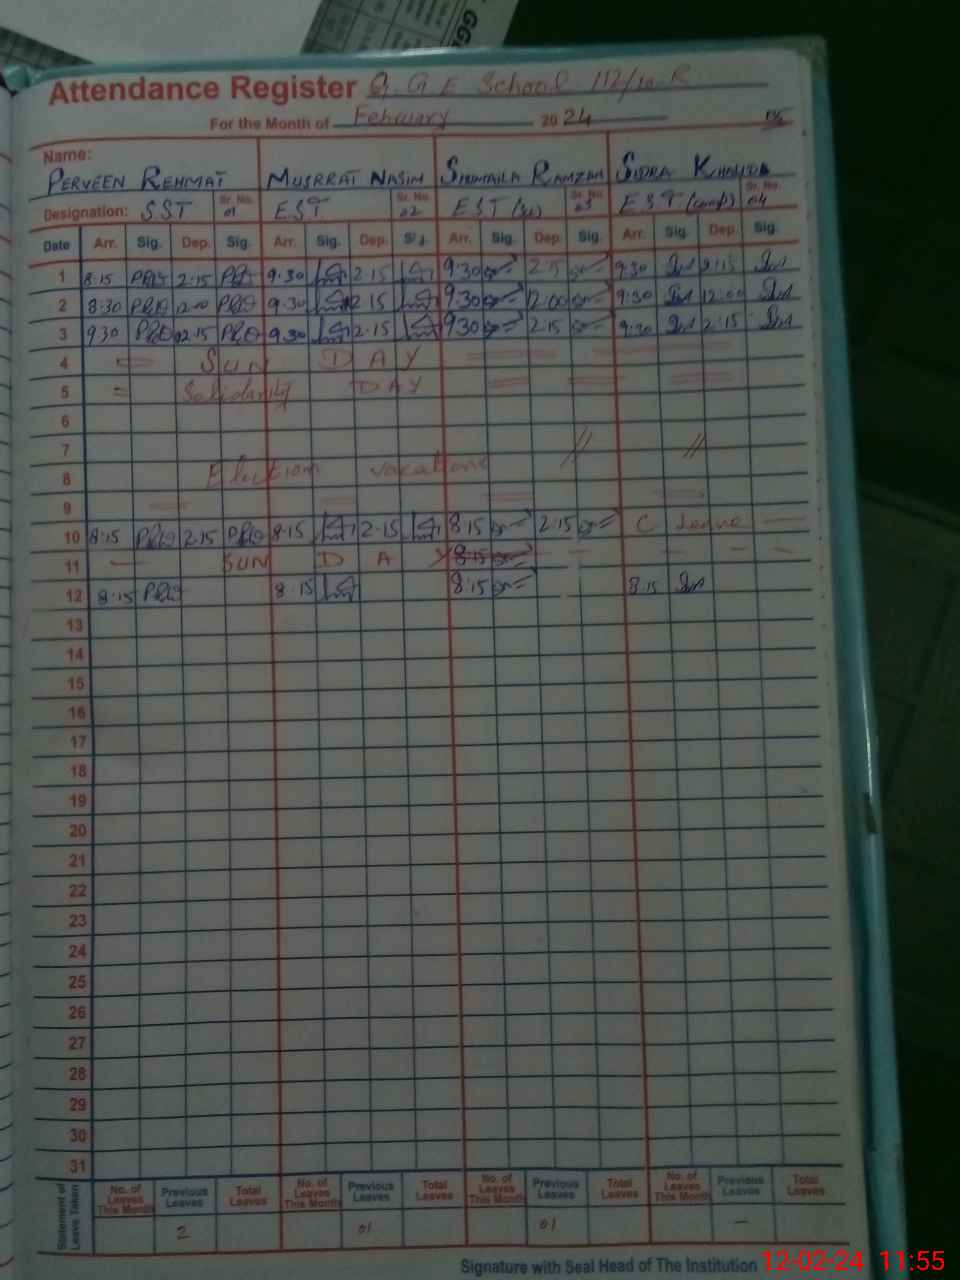 GG
Attendance Register G. G E School 112/10-R
For the Month of February 2024
Name:
PERVEEN REHMAT MUSRRAT NASIM SHUMAILA RAMZAN SIDRA KHALIDA
Designation: S.S.T Sr. No. 01 E.S.T Sr. No. 02 E.S.T (sc) Sr. No. 03 E.S.T (comp) Sr. No. 04
Date Arr. Sig. Dep. Sig. Arr. Sig. Dep. Sig. Arr. Sig. Dep. Sig. Arr. Sig. Dep. Sig.
1 8:15 2:15 9:30 2:15 9:30 2:15 9:30 2:15
2 8:30 12:00 9:30 12:15 9:30 12:00 9:30 12:00
3 930 02:15 9:30 2:15 9:30 2:15 9:30 2:15
4 = SUN DAY
5 = Solidarity DAY
6
7 // //
8 Election vacations
9
10 8:15 2:15 8:15 2:15 8:15 2:15 C leave —
11 — SUN DAY 8:15
12 8:15 8:15 8:15 8:15
13
14
15
16
17
18
19
20
21
22
23
24
25
26
27
28
29
30
31
Statement of Leave Taken
No. of Leaves This Month Previous Leaves Total Leaves No. of Leaves This Month Previous Leaves Total Leaves No. of Leaves This Month Previous Leaves Total Leaves No. of Leaves This Month Previous Leaves Total Leaves
2 01 01 —
Signature with Seal Head of The Institution
12-02-24 11:55